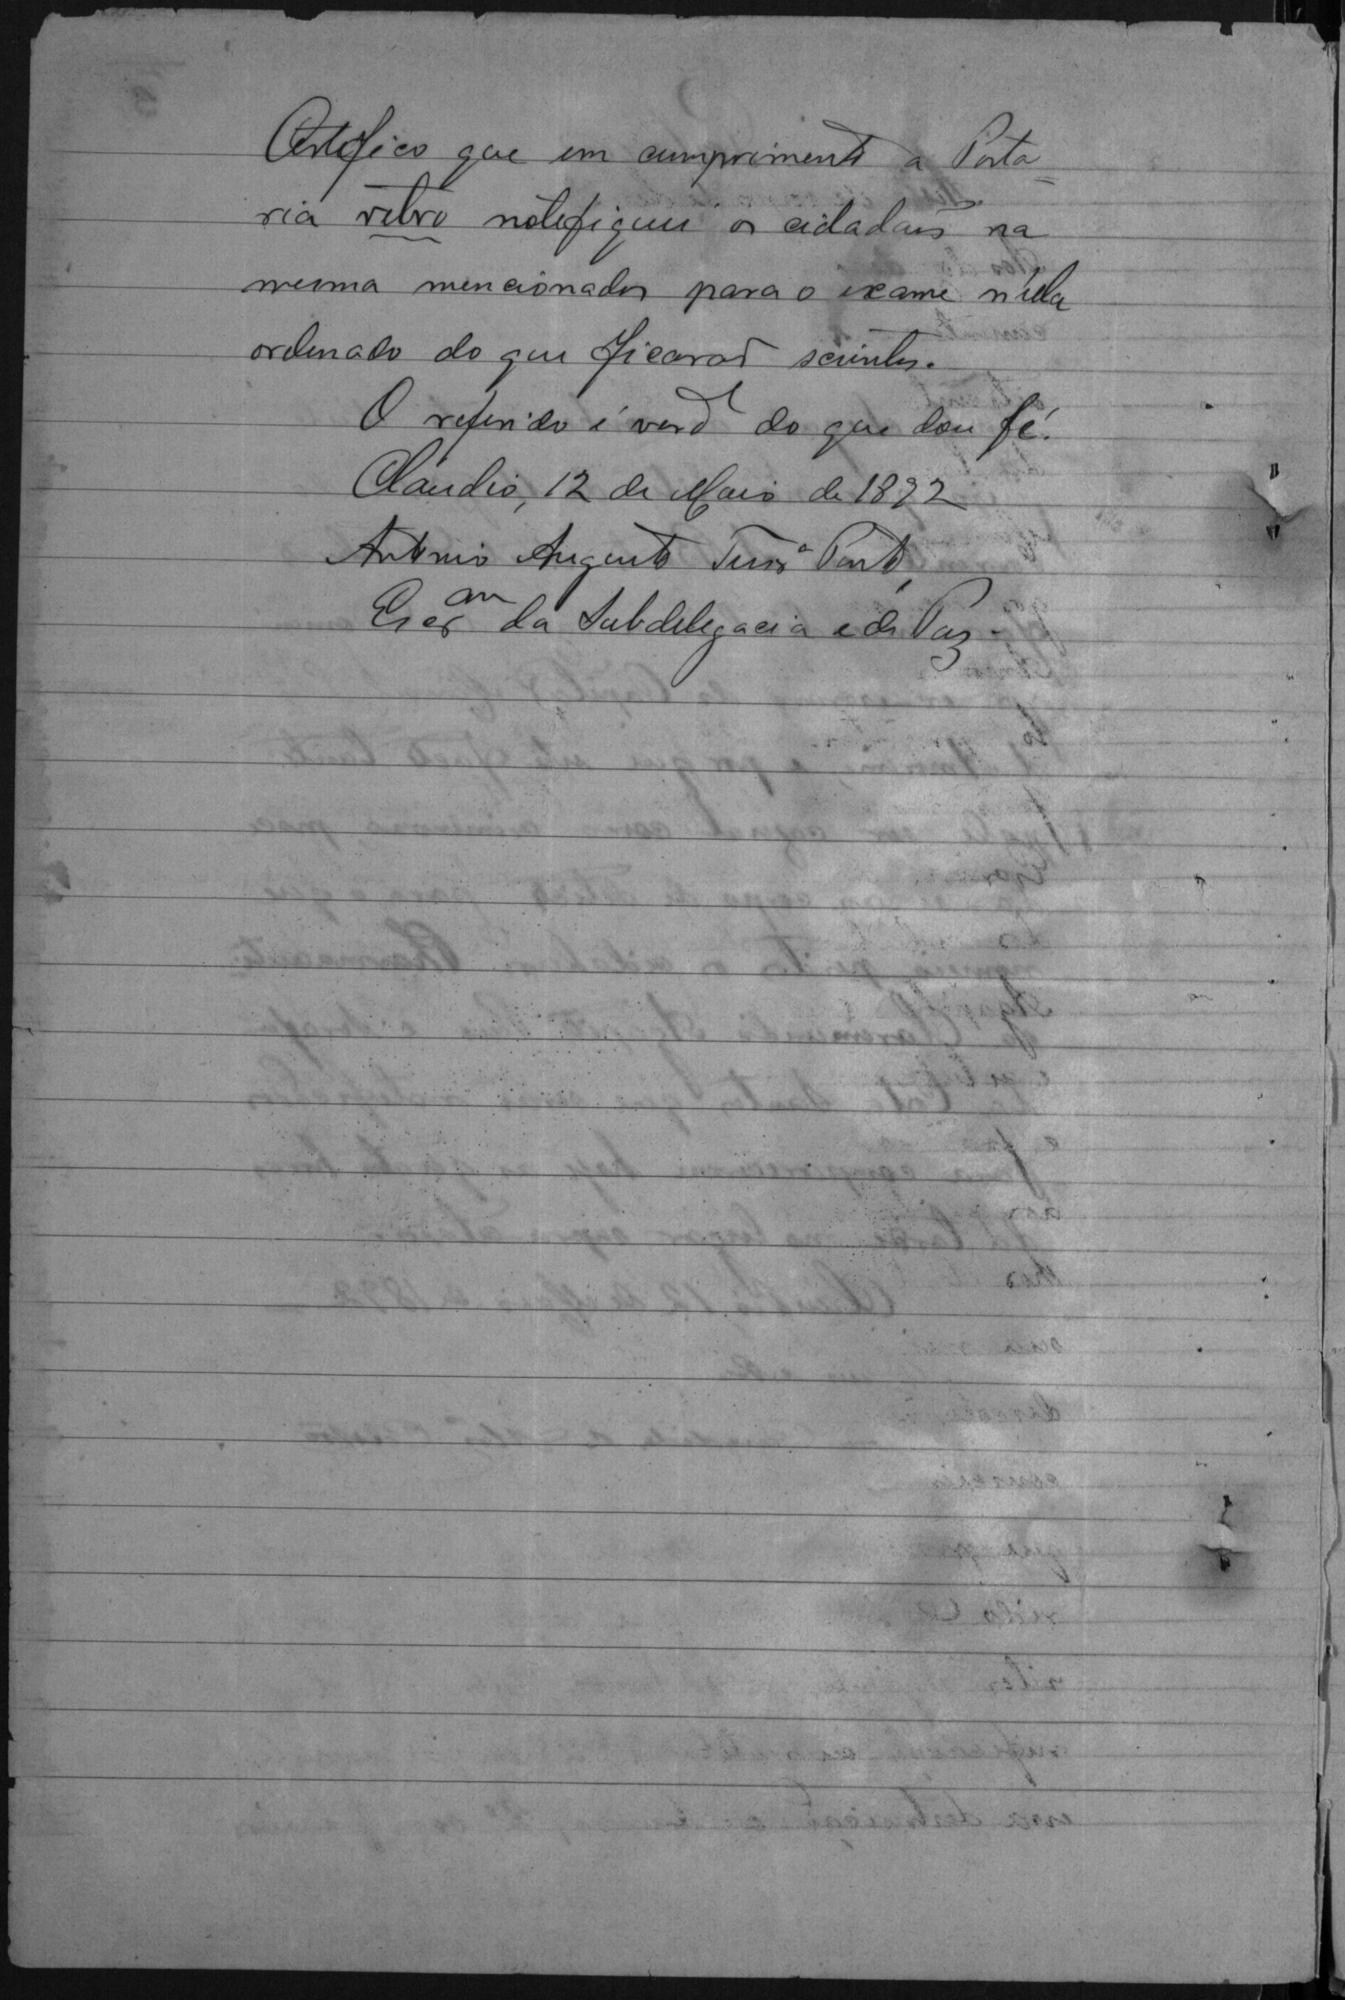 Certefico que em cumprimento a Porta=
ria retro notefiquei os cidadãos na
mesma mencionados para o exame n'ella
ordenado do que ficarão scientes.
O referido é verd.e do que dou fé.
Claudio, 12 de Maio de 1892
Antonio Augusto Teixr.a Porto,
Escr.am da Subdelegacia e de Paz.